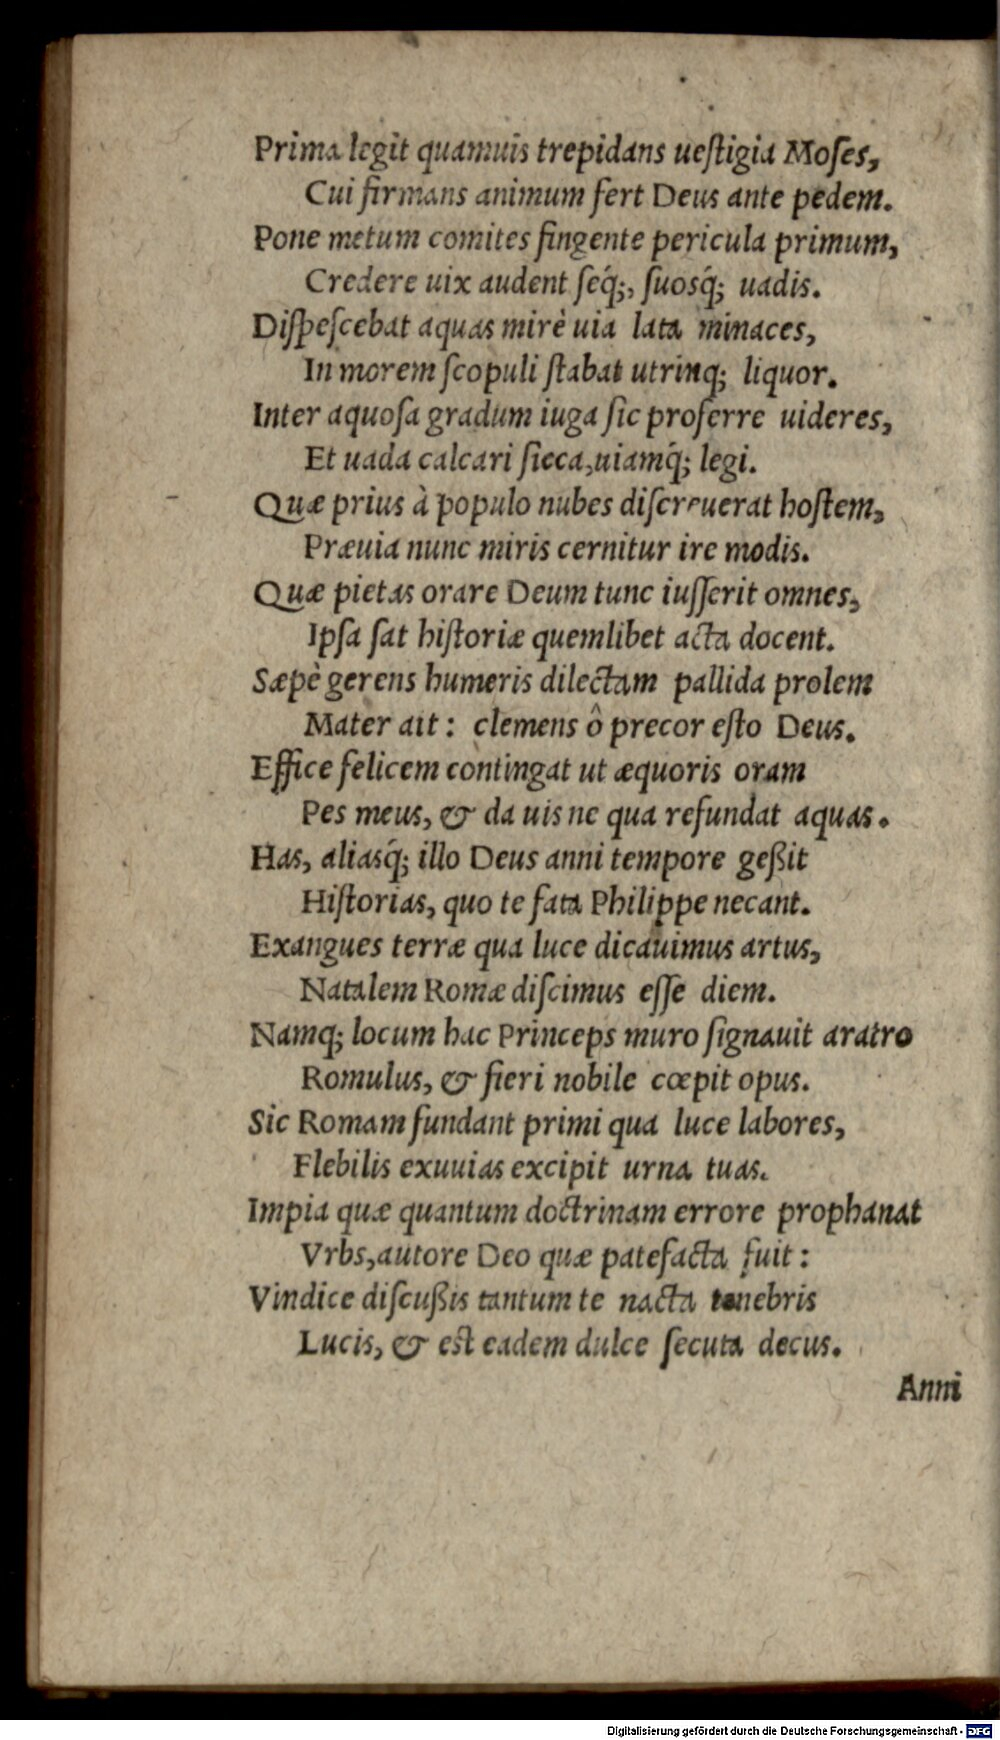 Prima legit quamuis trepidans ueſtigia Moſes,
Cui firmans animum fert Deus ante pedem.
Pone metum comites fingente pericula primum,
Credere uix audent ſeq́;, ſuosq́; uadis.
Diſpeſcebat aquas mirè uia lata minaces,
In morem ſcopuli ſtabat utrinq; liquor.
Inter aquoſa gradum iuga ſic proferre uideres,
Et uada calcari ſicca, uiamq́; legi.
Quæ prius à populo nubes diſcreuerat hoſtem,
Præuia nunc miris cernitur ire modis.
Quæ pietas orare Deum tunc iuſſerit omnes,
Ipſa ſat hiſtoriæ quemlibet acta docent.
Sæpè gerens humeris dilectam pallida prolem
Mater ait: clemens ô precor eſto Deus.
Effice felicem contingat ut æquoris oram
Pes meus, & da uis ne qua refundat aquas.
Has, aliasq́; illo Deus anni tempore geßit
Hiſtorias, quo te fata Philippe necant.
Exangues terræ qua luce dicauimus artus,
Natalem Romæ diſcimus eſſe diem.
Namq; locum hac Princeps muro ſignauit aratro
Romulus, & fieri nobile cœpit opus.
Sic Romam fundant primi qua luce labores,
Flebilis exuuias excipit urna tuas.
Impia quæ quantum doctrinam errore prophanat
Vrbs, autore Deo quæ patefacta fuit:
Vindice diſcußis tantum te nacta tenebris
Lucis, & eſt eadem dulce ſecuta decus.
Anni
Digitalisierung gefördert durch die Deutsche Forschungsgemeinschaft - DFG